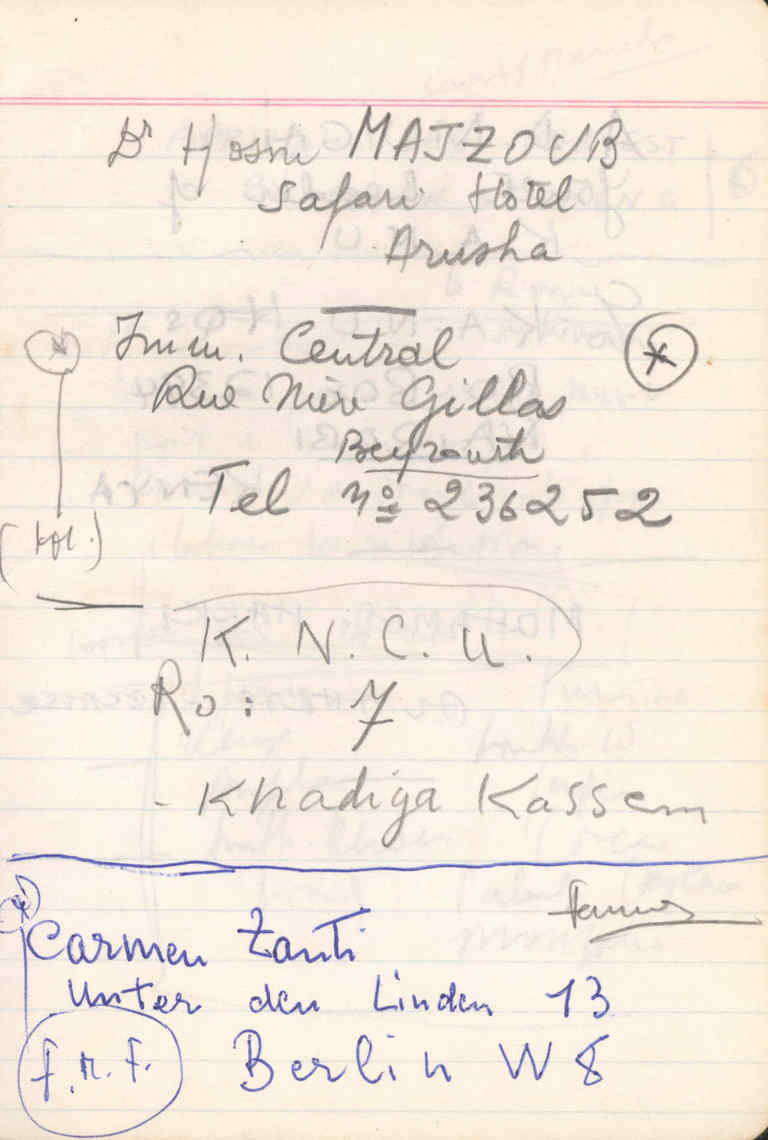 Dr Hosni MAJZOUB
Safari Hotel
Arusha
Imm. Central
Rue Mère Gillas
Beyrouth
Tel nº 236252
K. N. C. U.
Ro: 7
- Khadiga Kassem
Carmen Zanti
Unter den Linden 13
f.m.f. Berlin W 8